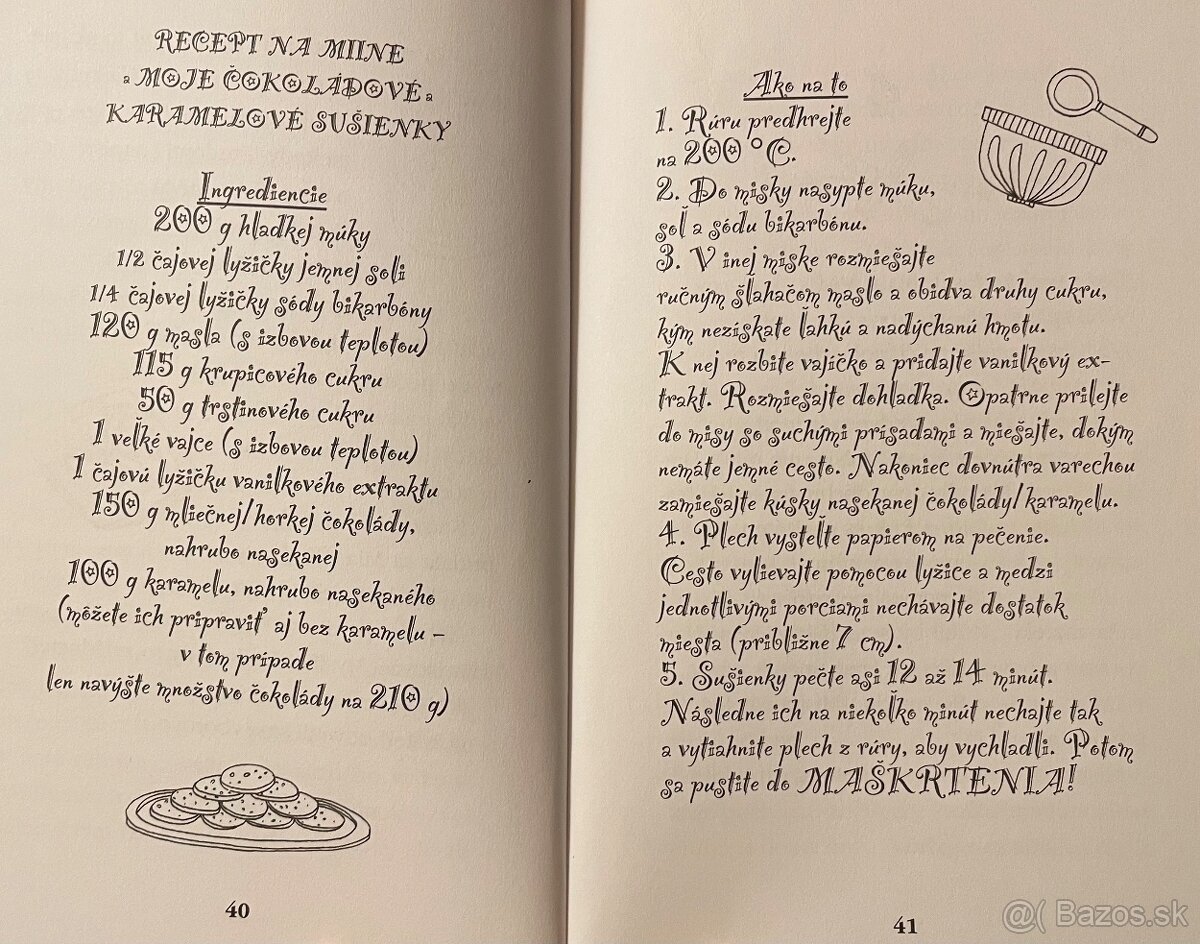 RECEPT NA MIINE
a MOJE ČOKOLÁDOVÉ a
KARAMELOVÉ SUŠIENKY
Ingrediencie
200 g hladkej múky
1/2 čajovej lyžičky jemnej soli
1/4 čajovej lyžičky sódy bikarbóny
120 g masla (s izbovou teplotou)
115 g krupicového cukru
50 g trstinového cukru
1 veľké vajce (s izbovou teplotou)
1 čajovú lyžičku vanilkového extraktu
150 g mliečnej/horkej čokolády,
nahrubo nasekanej
100 g karamelu, nahrubo nasekaného
(môžete ich pripraviť aj bez karamelu –
v tom prípade
len navýšte množstvo čokolády na 210 g)
40
Ako na to
1. Rúru predhrejte
na 200 °C.
2. Do misky nasypte múku,
soľ a sódu bikarbónu.
3. V inej miske rozmiešajte
ručným šľahačom maslo a obidva druhy cukru,
kým nezískate ľahkú a nadýchanú hmotu.
K nej rozbite vajíčko a pridajte vanilkový ex-
trakt. Rozmiešajte dohladka. Opatrne prilejte
do misy so suchými prísadami a miešajte, dokým
nemáte jemné cesto. Nakoniec dovnútra varechou
zamiešajte kúsky nasekanej čokolády/karamelu.
4. Plech vysteľte papierom na pečenie.
Cesto vylievajte pomocou lyžice a medzi
jednotlivými porciami nechávajte dostatok
miesta (približne 7 cm).
5. Sušienky pečte asi 12 až 14 minút.
Následne ich na niekoľko minút nechajte tak
a vytiahnite plech z rúry, aby vychladli. Potom
sa pustite do MAŠKRTENIA!
41
@( Bazos.sk